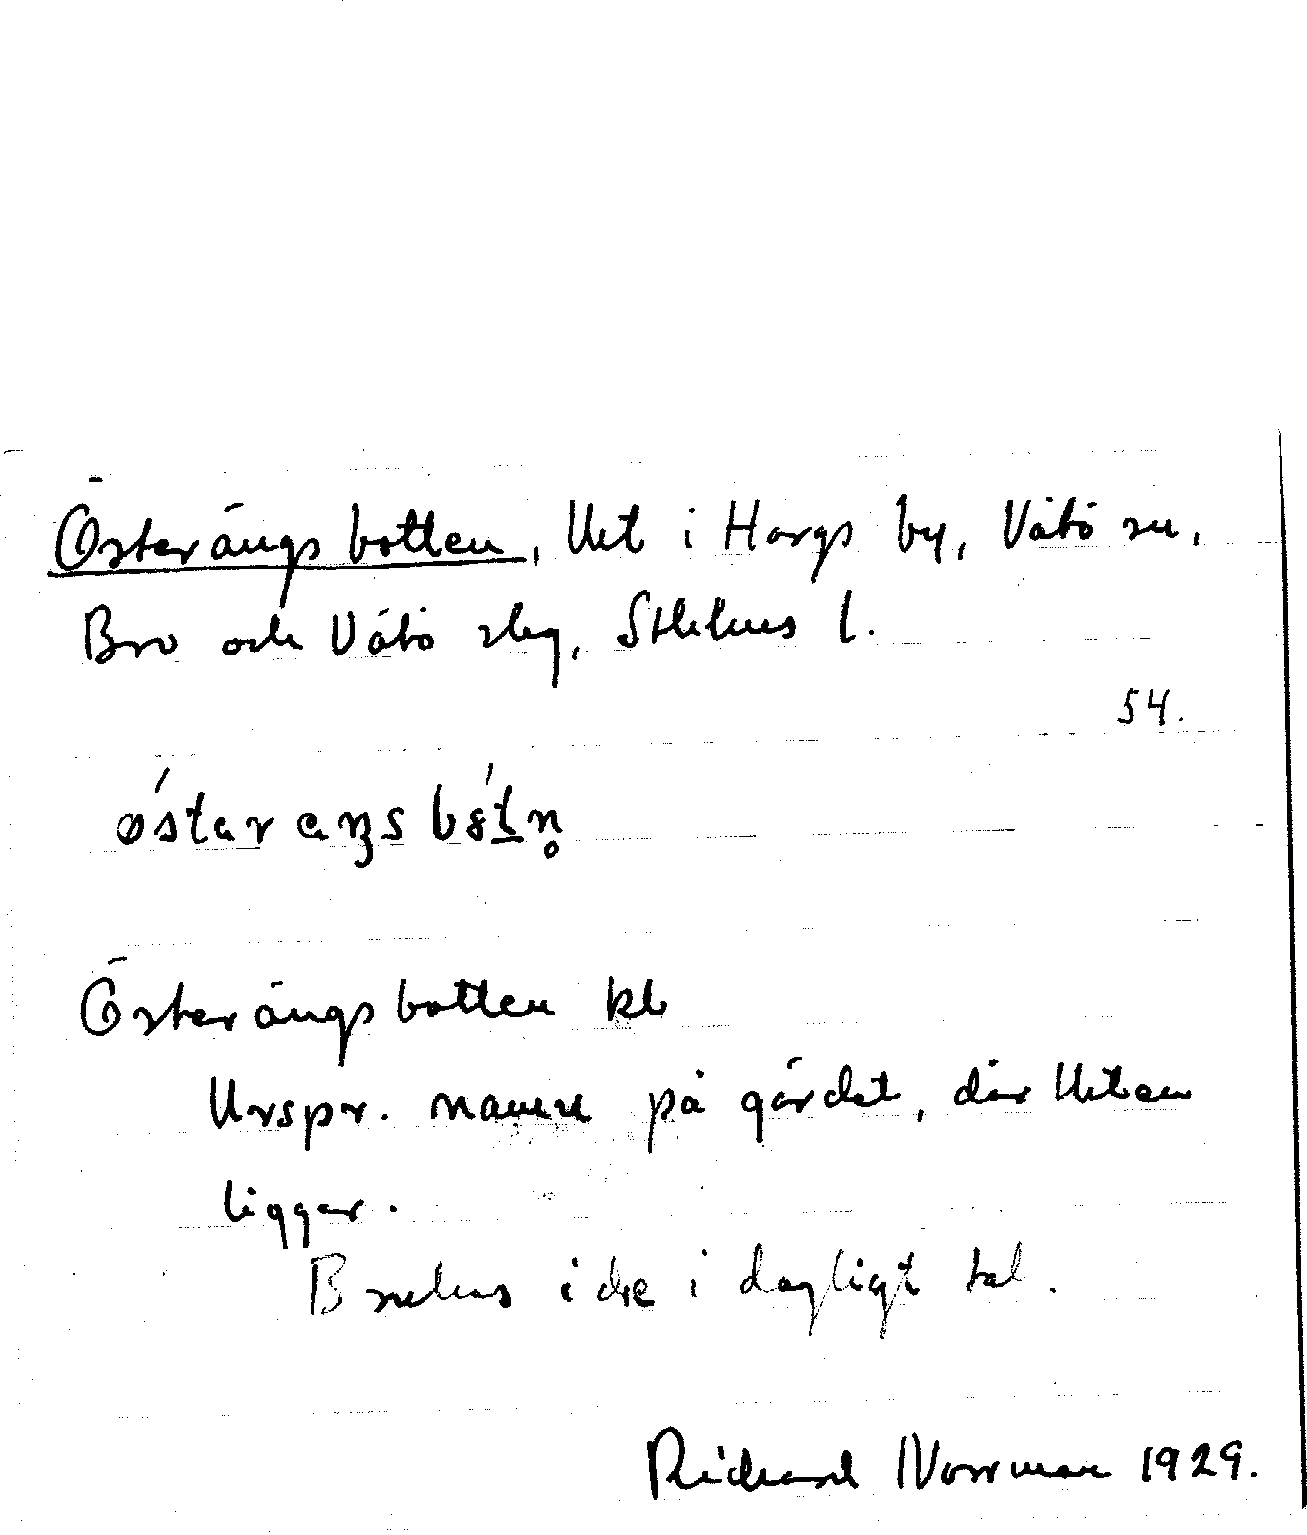 Österängsbotten, lht i Hargs by, Vätö sn,
Bro och Vätö skg, Sthlms l.
54.
Österängsbotten kb
Urspr. namn på gärdet, där lhten
ligger.
Brukas icke i dagligt tal.
Richard Norrman 1929.